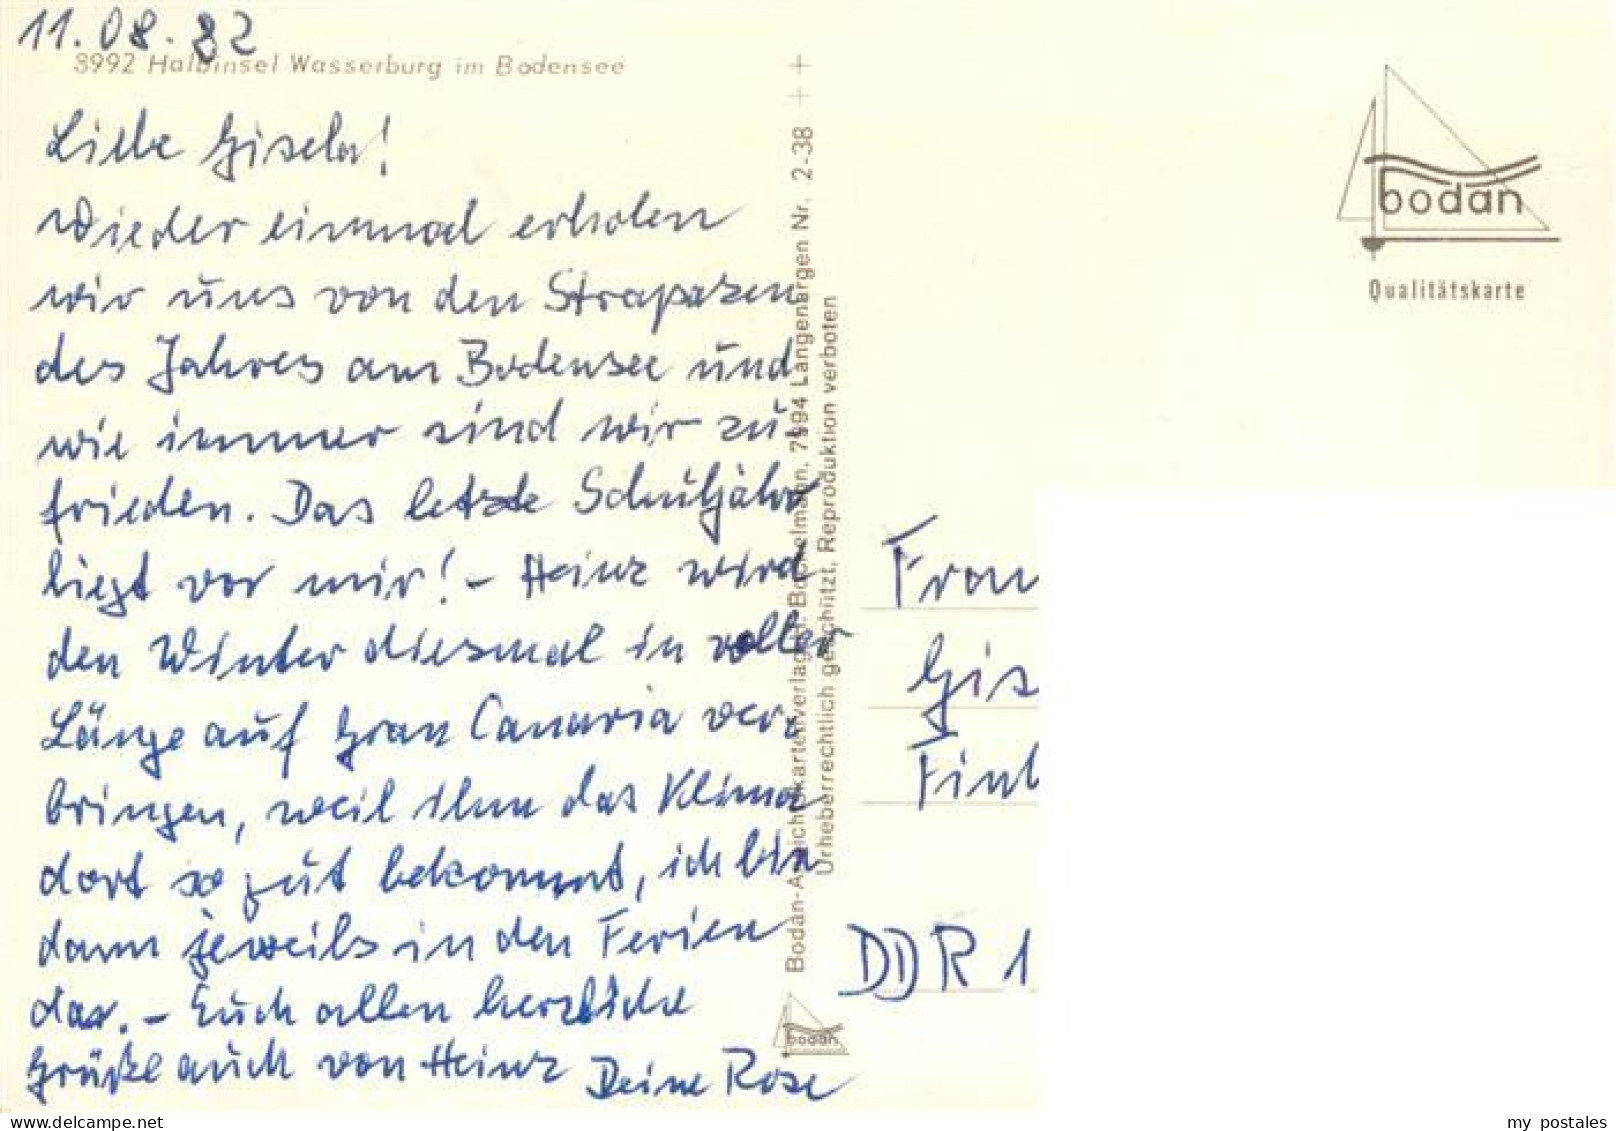 11.08.82
3992 Halbinsel Wasserburg im Bodensee
Liebe Gisela!
Wieder einmal erholen
wir uns von den Strapazen
des Jahres am Bodensee und
wie immer sind wir zu-
frieden. Das letzte Schuljahr
liegt vor mir! - Heinz wird
den Winter diesmal in voller
Länge auf Gran Canaria ver-
bringen, weil ihm das Klima
dort so gut bekommt, ich bin
dann jeweils in den Ferien
da. - Euch allen herzliche
Grüße auch von Heinz Deine Rose
Bodan-Ansichtskartenverlag H. Bockelmann, 7994 Langenargen Nr. 2-38 + +
Urheberrechtlich geschützt, Reproduktion verboten
bodan
bodan
Qualitätskarte
Frau
Gis
DDR 1
www.delcampe.net
my_postales